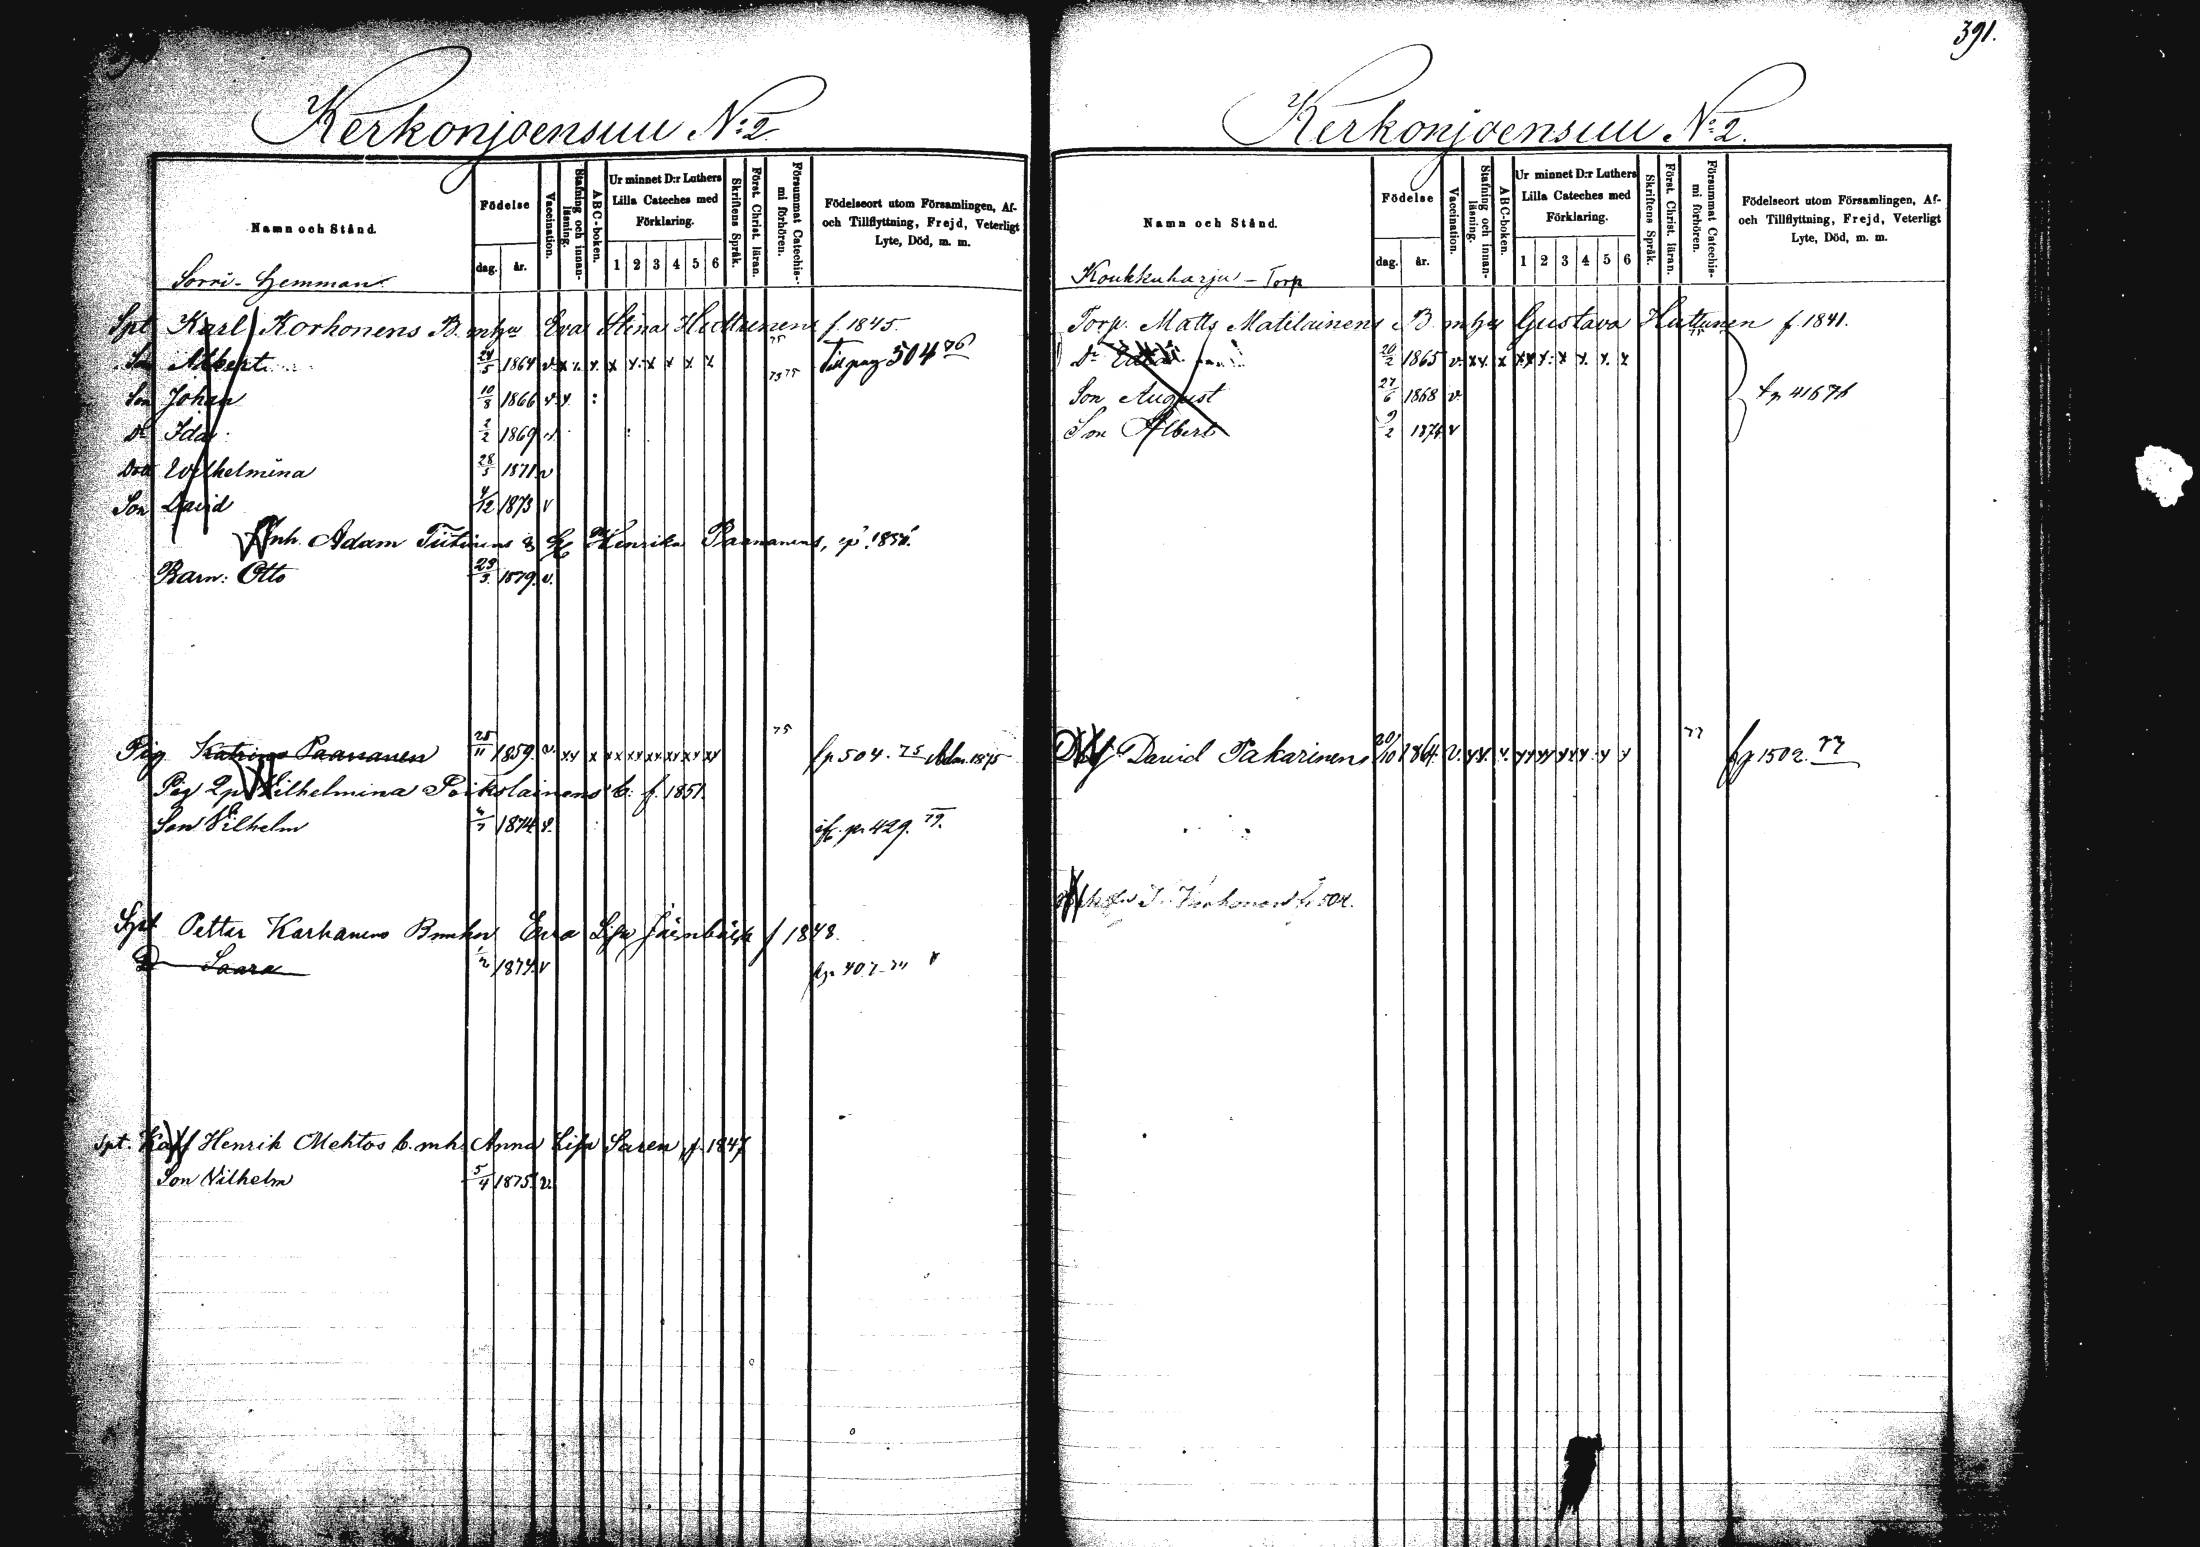 Kerkonjoensuu N:o 2.
Namn och Stånd.
Födelse
dag. år.
Vaccination.
Stafning och innanläsning.
ABC-boken.
Ur minnet D:r Luthers Lilla Cateches med Förklaring.
1 2 3 4 5 6
Skriftens Språk.
Först. Christ. läran.
Försummat Catechismi förhören.
Födelseort utom Församlingen, Af- och Tillflyttning, Frejd, Veterligt Lyte, Död, m. m.
Sorri - Hemman
Spt Karl Korhonens B. mhu Eva Stina Huttunens f. 1845.
75
Son Albert 24/5 1864 v. x x x x x x x x x Till pag 504 76
73 75
Son Johan 10/8 1866 v. x
Dr Ida 2/2 1869 v.
Dott Wilhelmina 28/5 1871 v
Son David 4/12 1873 v
Inh. Adam Tiitinens & H Henrika Paananens, 1854.
Barn: Otto 23/3 1879. v.
75
Pig Katrina Paananen 25/11 1859. v. xx x xx xx xx xx xx xx fp 504. 75 Adm. 1875
Pig Wilhelmina Poikolainens b: f. 1851.
Son Vilhelm 1874 p. 429. 79.
Spt Petter Karhanens Bmhu Eva Lisa f 1848.
D Saara 1/2 1874 v
Spt. Henrik Mehtos b. mh. Anna Lisa Saren f. 1847
Son Vilhelm 5/4 1875. v.
391.
Kerkonjoensuu N:o 2.
Namn och Stånd.
Födelse
dag. år.
Vaccination.
Stafning och innanläsning.
ABC-boken.
Ur minnet D:r Luthers Lilla Cateches med Förklaring.
1 2 3 4 5 6
Skriftens Språk.
Först. Christ. läran.
Försummat Catechismi förhören.
Födelseort utom Församlingen, Af- och Tillflyttning, Frejd, Veterligt Lyte, Död, m. m.
Koukkuharju - Torp
Torp. Matts Matilainens B. mhu Gustava Huttunen f. 1841.
75
Dr 20/2 1865 v. xx x xx x x x x x
Son August 27/6 1868 v. 416 76
Son Albert 9/2 1874 v
David Takarinens 20/10 1864. v. xx. x. xx xx xx x x 77 fp 1502. 77